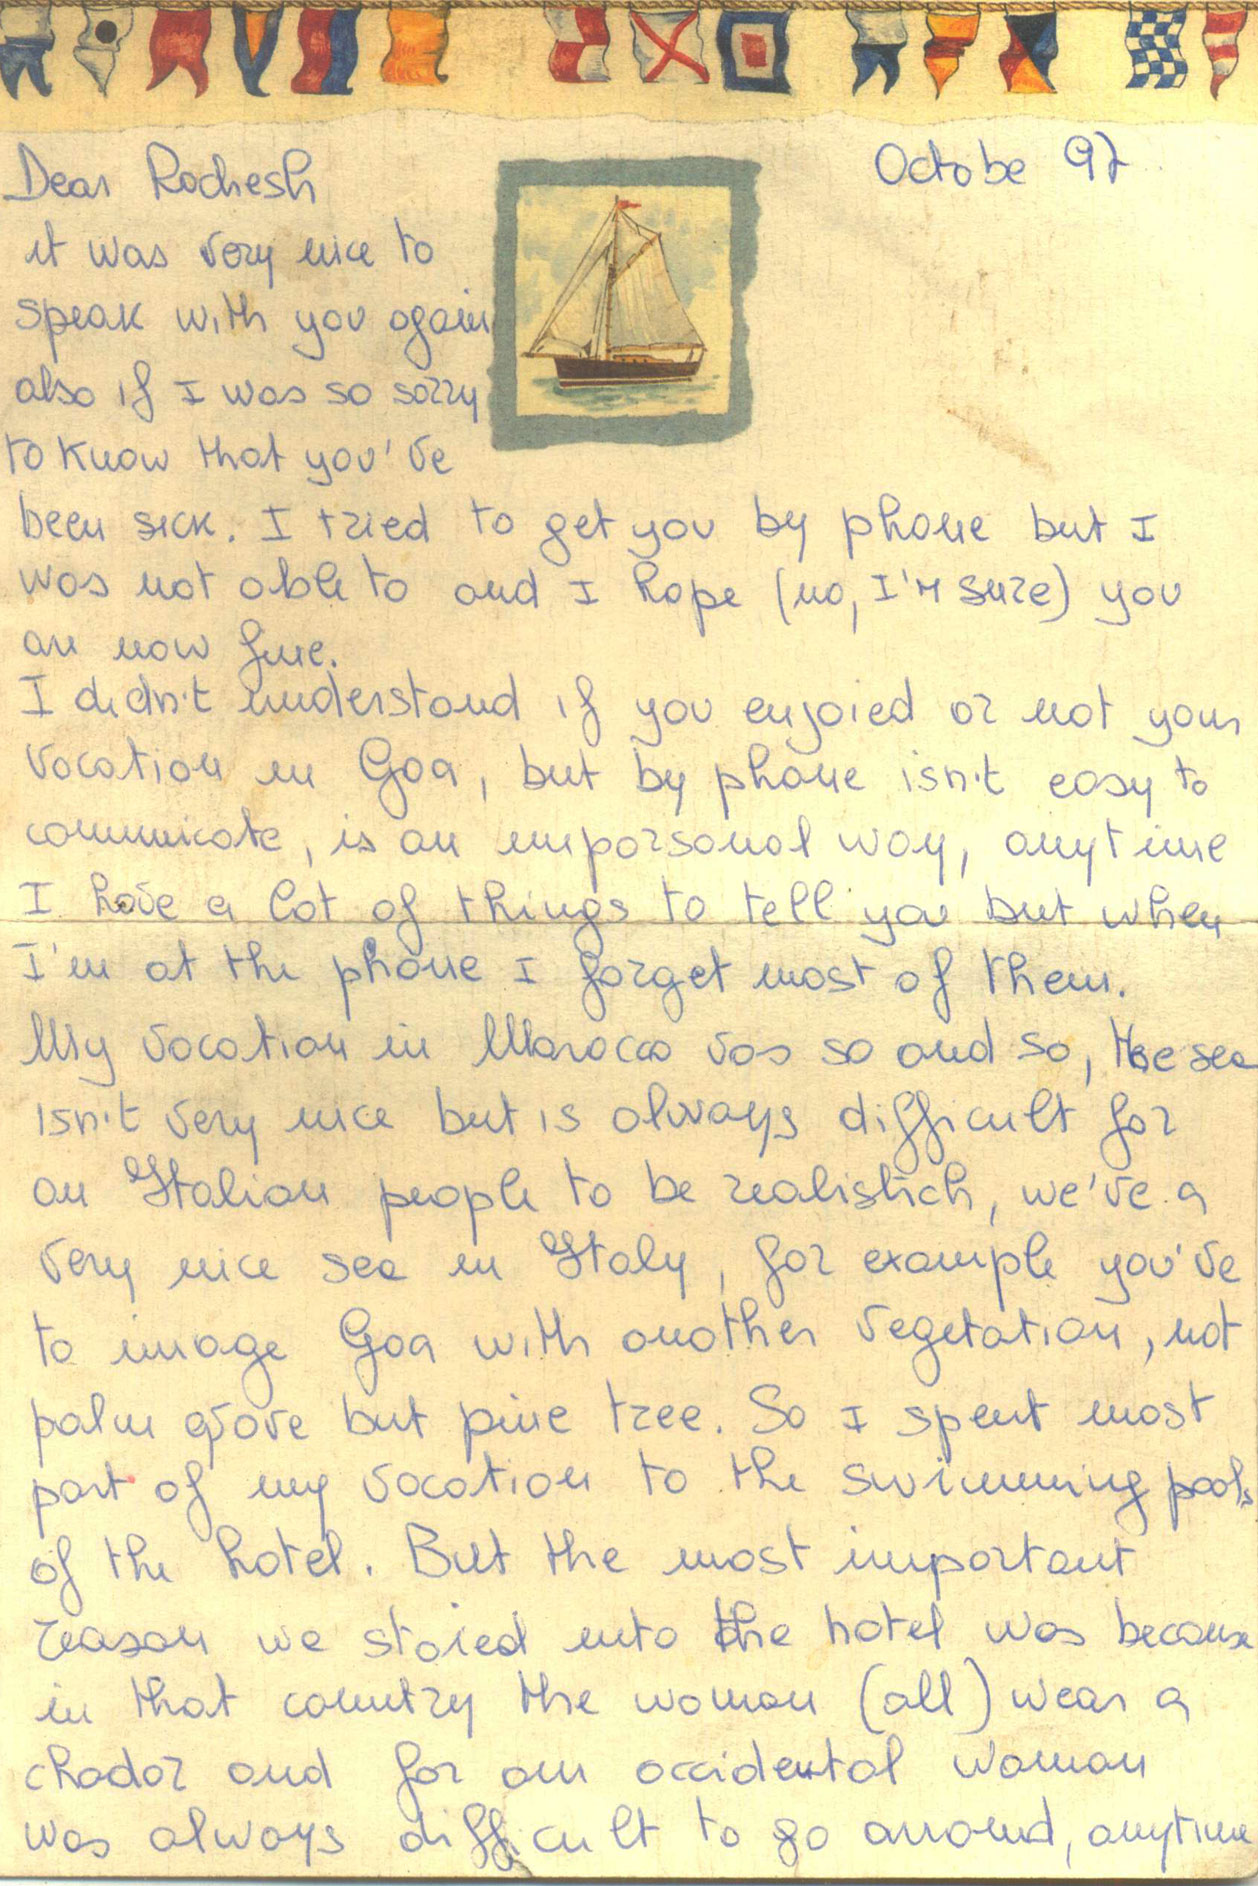 Octobe 97
Dear Rochesh
it was very nice to
speak with you again
also if I was so sorry
to know that you've
been sick. I tried to get you by phone but I
was not able to and I hope (no, I'M sure) you
are now fine.
I didn't understand if you enjoied or not your
vacation in Goa, but by phone isn't easy to
communicate, is an impersonal way, anytime
I have a lot of things to tell you but when
I'm at the phone I forget most of them.
My vacation in Marocco vas so and so, the sea
isn't very nice but is always difficult for
an Italian people to be realistich, we've a
very nice sea in Italy, for example you've
to image Goa with another vegetation, not
palm grove but pine tree. So I spent most
part of my vacation to the swimming pools
of the hotel. But the most important
reason we stoied into the hotel was because
in that country the woman (all) wear a
chador and for an occidental woman
was always difficult to go around, anytime